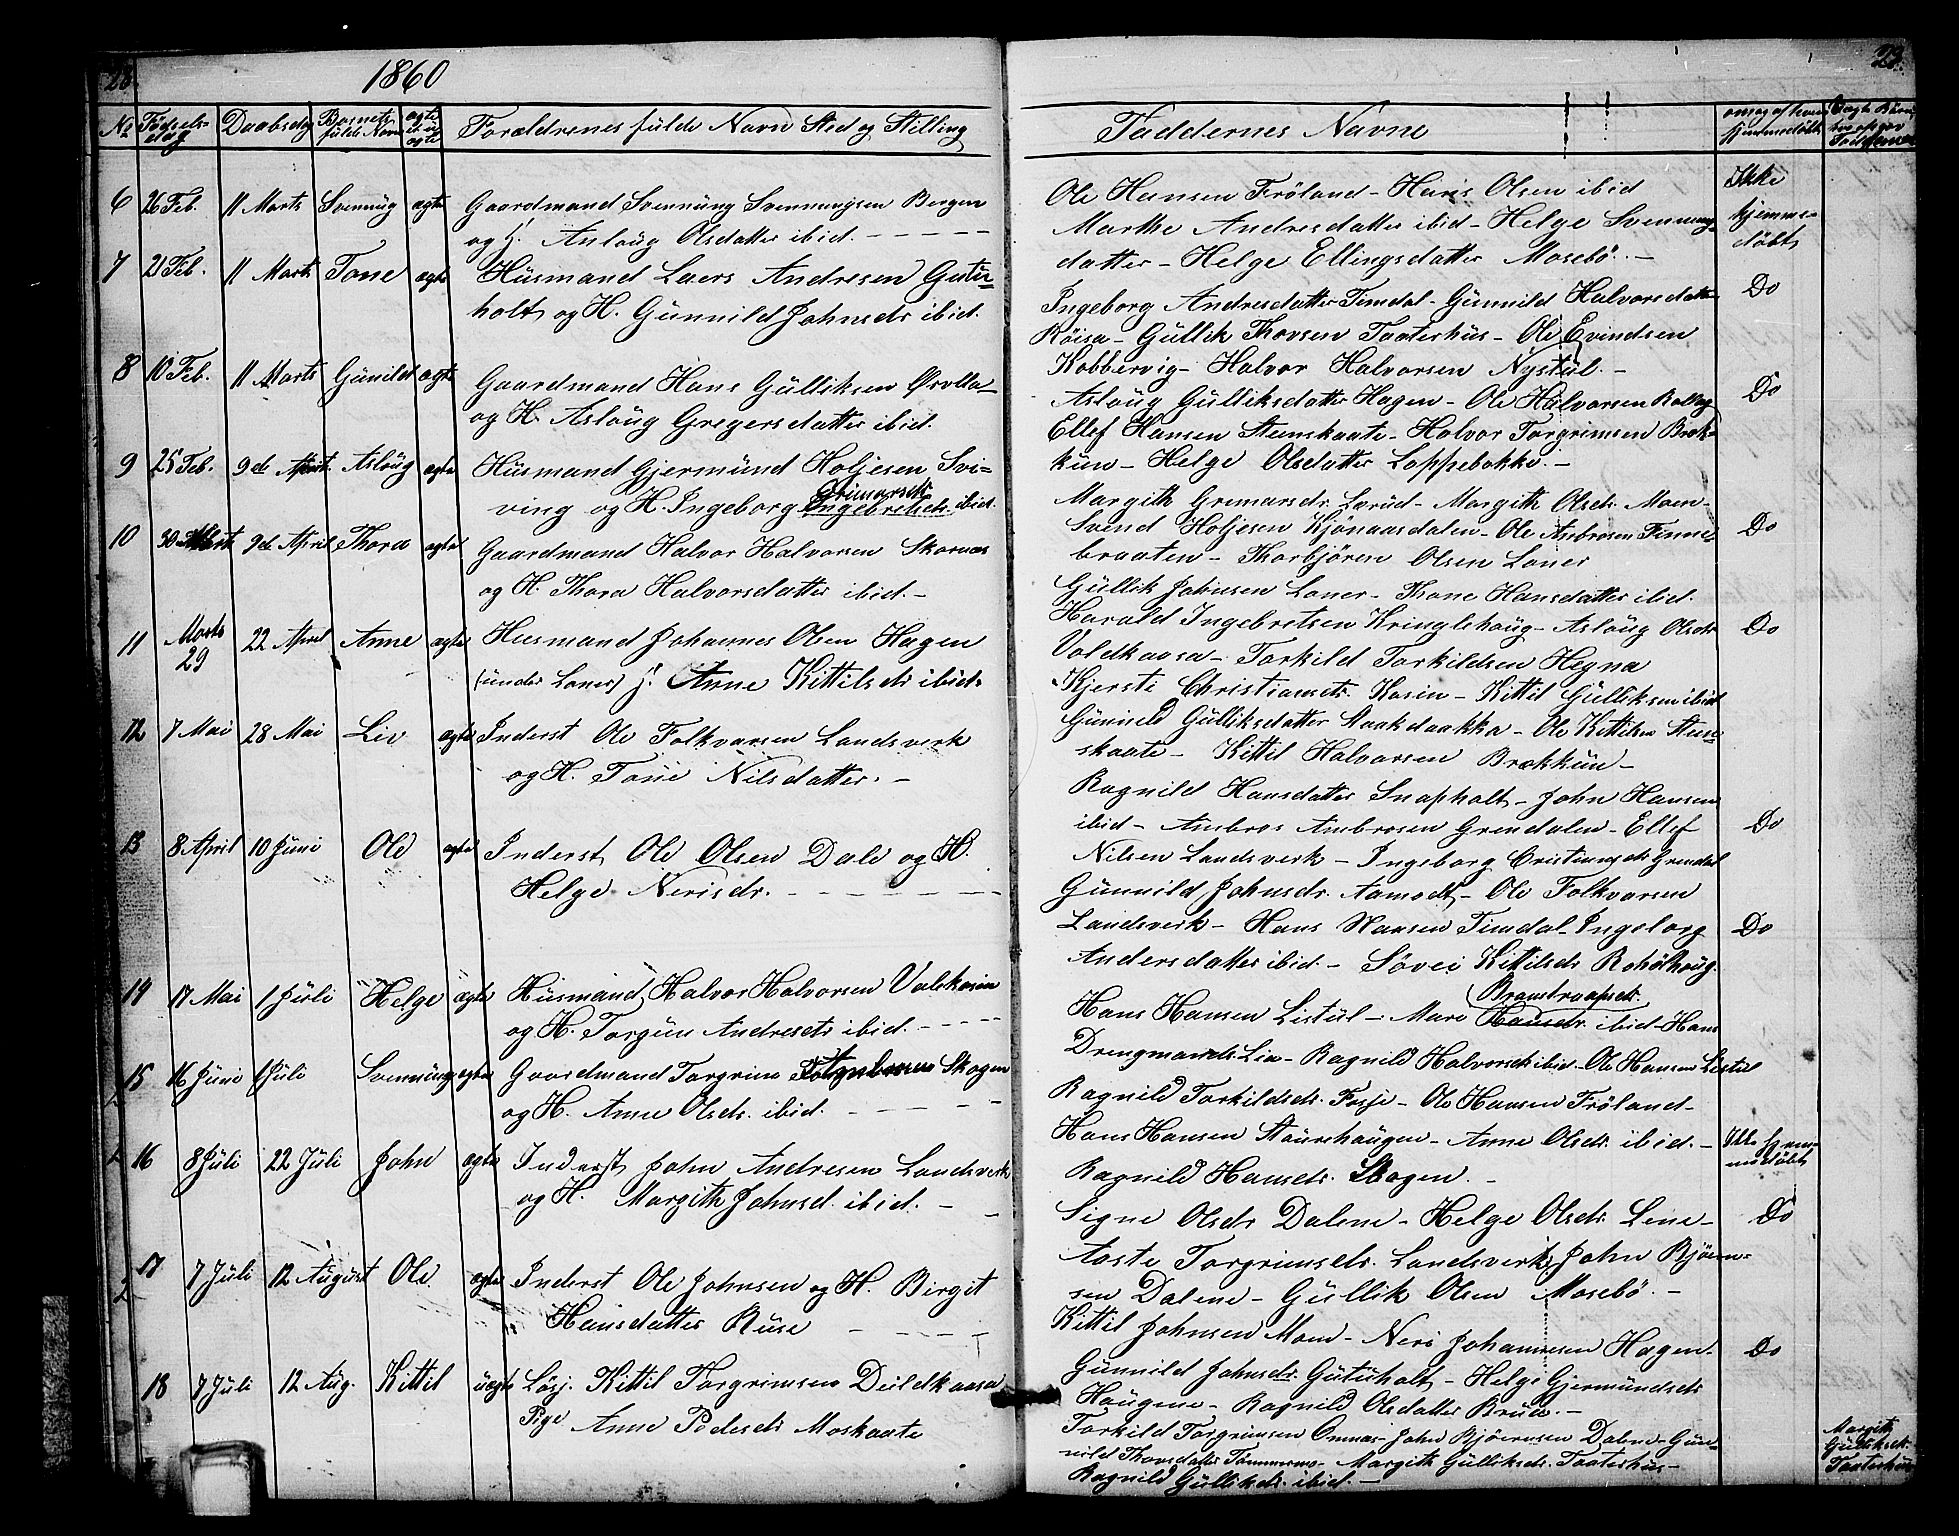 28.
1860
No Fødsels-dag Daabsdag Barnets fulde Navn ægte el. uægte Forældrenes fulde Navn Sted og Stilling
6 26 Feb. 11 Marts Svennüg ægte Gaardmand Svennüng Svennungsen Bergen
og H. Aslaüg Olsdatter ibid.
7 21 Feb. 11 Marts Tone ægte Hüsmand Laers Andresen Gütü-
holt og H. Günnild Johnsdr ibid.
8 10 Feb. 11 Marts Günild ægte Gaardmand Hans Gülliksen Ørvlla
og H. Aslaüg Gregersdatter ibid.
9 25 Feb. 9de April Aslaüg ægte Hüsmand Gjermünd Holjesen Svi-
Grimarsdr
ving og H. Ingeborg Ingebretsdr ibid.
10 30 Mart 9de April Thora ægte Gaardmand Halvor Halvorsen Skornes
og H. Thora Halvorsdatter ibid.
11 Marts 29 22 April Anne ægte Husmand Johannes Olsen Hagen
(under Loner) H. Anne Kittilsdr ibid.
12 7 Mai 28 Mai Liv ægte Inderst Ole Folkvarsen Landsverk
og H. Tone Nilsdatter.
13 8 April 10 Jüni Ole ægte Inderst Ole Olsen Dale og H.
Helge Nerisdr.
14 17 Mai 1 Jüli Helge ægte Hüsmand Halvor Halvorsen Valekasin
og H. Torgün Andresdr ibid.
15 16 Jüni 1 Jüli Svennüng ægte Gaardmand Torgrim Skogen
og H. Anne Olsdr. ibid.
16 8 Jüli 22 Jüli John ægte Inderst John Andresen Landsverk
og H. Margith Johnsd. ibid.
17 7 Jüli 12 August Ole ægte Inderst Ole Johnsen og H. Birgit
Hansdatter Rüse
18 7 Jüli 12 Aug. Kittil üægte Løsj. Kittil Torgrimsen Deildkaasa
Pige Anne Pedersdr Moskaate
29.
Faddernes Navne
Ole Hansen Fröland - Haris Olsen ibid
Marthe Andresdatter ibid - Helge Svennung-
datter - Helge Ellingsdatter Mosebö. -
Ikke hjemme-döbt
Ingeborg Andresdatter Timdal - Günnild Halvorsdatter
Do
Röisa - Güllik Thovsen Taaterhüs - Ole Evindsen
Kobbervig - Halvor Halvorsen Nystül. -
Aslaüg Gülliksdatter Hagen - Ole Halvorsen Bolkg
Do
Ellef Hansen Stenskaate - Halvor Torgrimsen Bræk-
kün - Helge Olsdatter Loppebokke. -
Margith Gremarsdr. Lorüd - Margith Olsdr. Moen -
Svend Holjesen Kjönaasdalen - Ole Ambrosen Finne-
Do
braaten - Thorbjören Olsen Loner
Güllik Johnsen Loner - Thone Hansdatter ibid.
Harald Ingebretsen Kringlehaüg - Aslaüg Olsdr
Do
Voldkaasa - Torkild Torkildsen Hegna
Kjersti Christiansdr. Kasin - Kittil Gülliksen ibid
Günnild Gülliksdatter Staakdaakka - Ole Kittilsen Sten-
skaate - Kittil Halvorsen Brækkün -
Ragnild Hansdatter Snapholt - John Hansen
ibid - Ambros Ambrosen Grendalen - Ellef
Do
Nilsen Landsverk - Ingeborg Cristiansdr Grendal
Günnild Johnsdr. Aamodt - Ole Folkvarsen
Landsverk - Hans Hansen Timdal - Ingeborg
Do
Andersdatter ibid. - Sövei Kittilsdr Roholthaüg.
Hans Hansen Listül - Mari Hansdr. ibid - Hans
Drengmansdr. Lia - Ragnild Halvorsdr ibid - Ole Hansen Listül
Ragnild Torkildsdr. Fosje - Ole Hansen Fröland -
Hans Hansen Staürehaügen - Anne Olsdr. ibid. -
Ragnild Hansdr. Skogen. -
Ikke hjem-medöbt
Signe Olsdr Dalene - Helge Olsdr. Lene -
Do
Aaste Torgrimsdr. Landsverk John Björen-
sen Dalene - Güllik Olsen Mosebö. -
Kittil Johnsen Moen - Neri Johannesen Hagen -
Do
Günnild Johnsdr. Gütüholt - Helge Gjermündsdr
Haügene - Ragnild Olsdatter Brüa. -
Torkild Torgrimsen Omnæs - John Björensen Dalene - Gün-
nild Thovsdatter Tömmermo - Margith Gülliksdr. Taaterhüs -
Ragnild Gülliksdr. ibid. -
Margith Gülliksdr. Taaterhüs